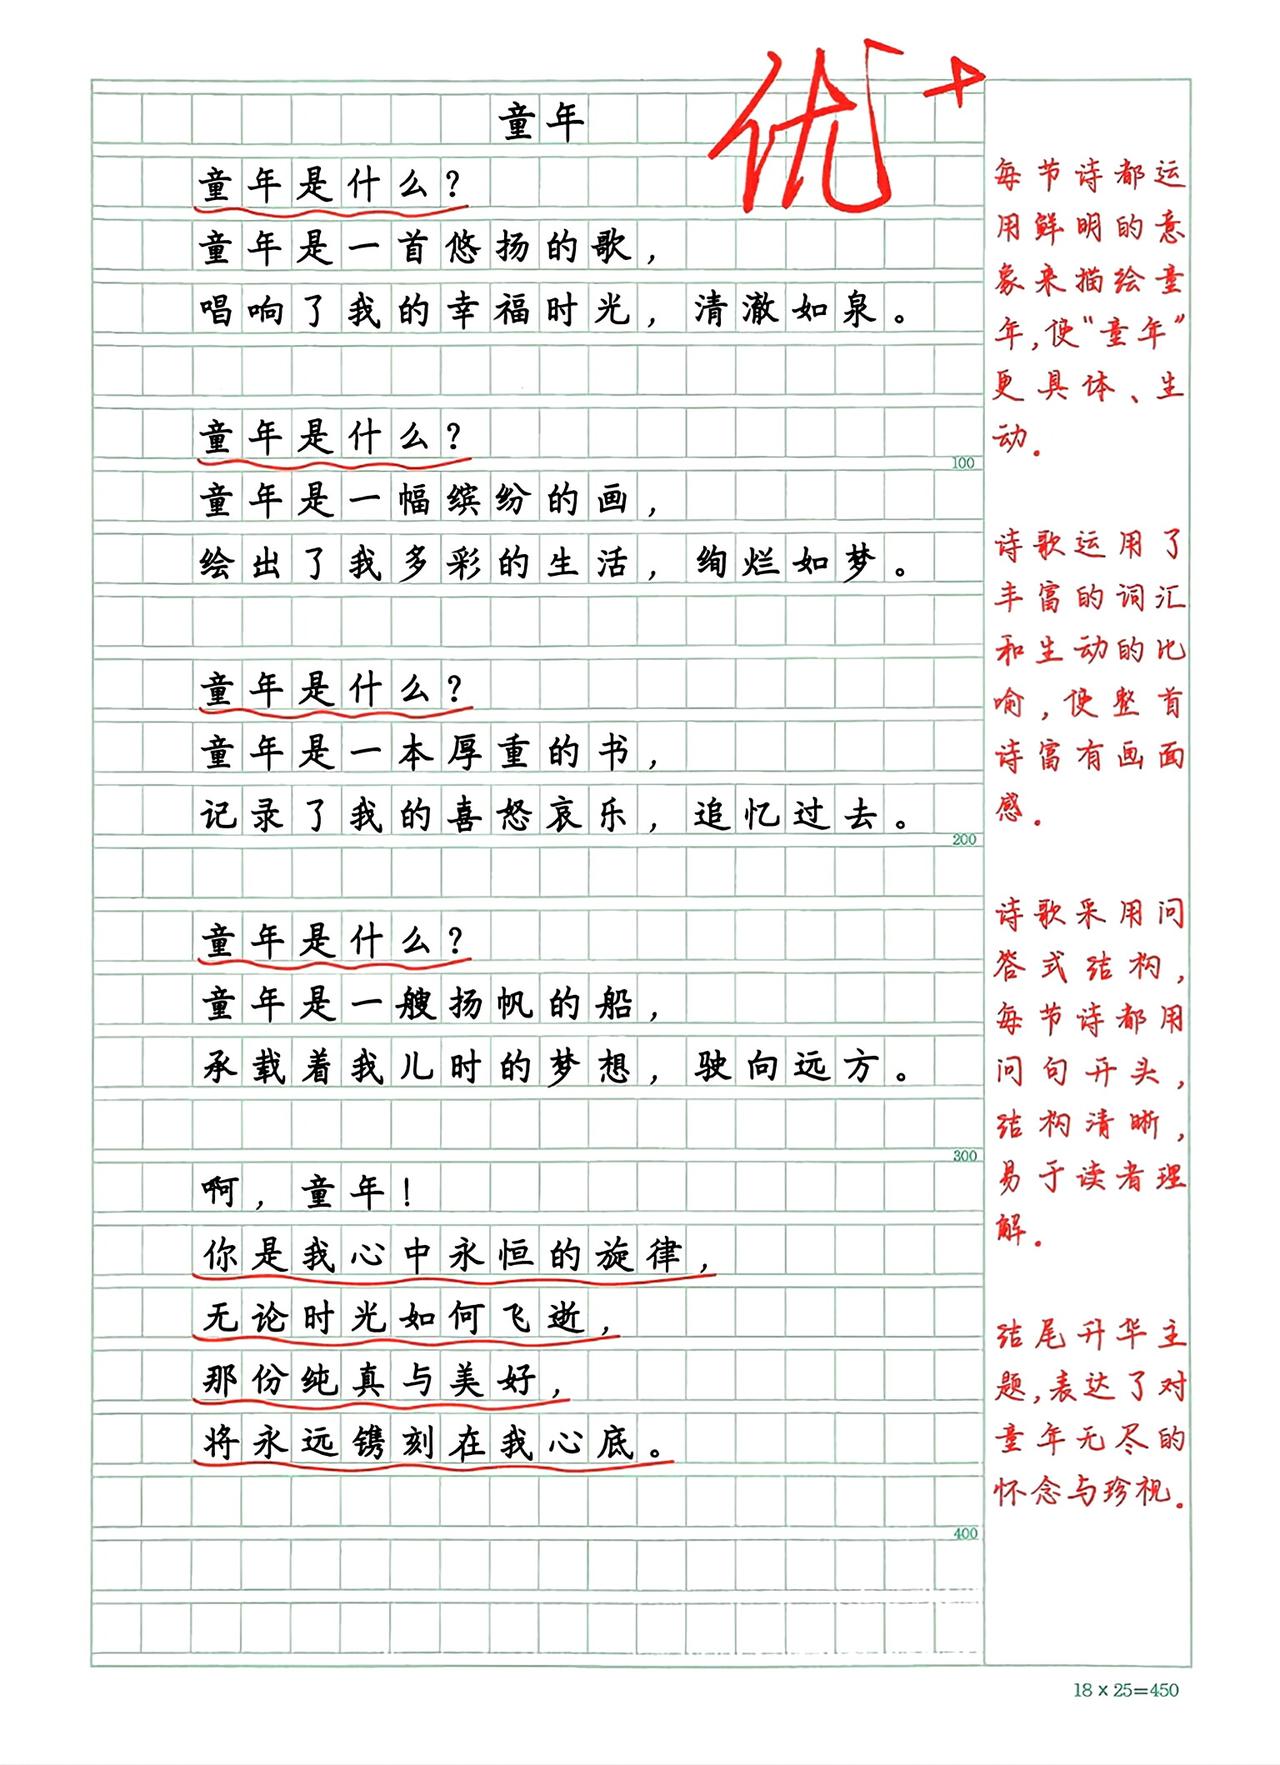 优+
童年
童年是什么？
童年是一首悠扬的歌，
唱响了我的幸福时光，清澈如泉。
童年是什么？
100
童年是一幅缤纷的画，
绘出了我多彩的生活，绚烂如梦。
童年是什么？
童年是一本厚重的书，
记录了我的喜怒哀乐，追忆过去。
200
童年是什么？
童年是一艘扬帆的船，
承载着我儿时的梦想，驶向远方。
300
啊，童年！
你是我心中永恒的旋律，
无论时光如何飞逝，
那份纯真与美好，
将永远镌刻在我心底。
400
每节诗都运
用鲜明的意
象来描绘童
年，使“童年”
更具体、生
动。
诗歌运用了
丰富的词汇
和生动的比
喻，使整首
诗富有画面
感。
诗歌采用问
答式结构，
每节诗都用
问句开头，
结构清晰，
易于读者理
解。
结尾升华主
题，表达了对
童年无尽的
怀念与珍视。
18×25=450